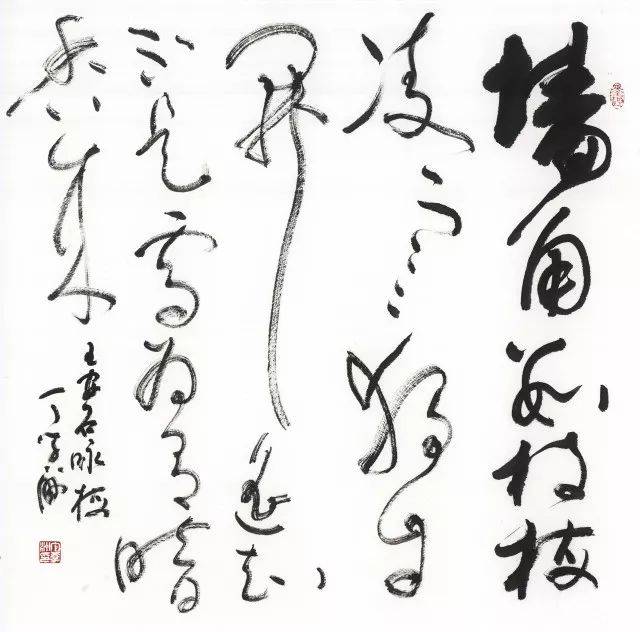 墙角数枝梅
凌寒独自
开遥知
不是雪为有暗
香来
王安石咏梅